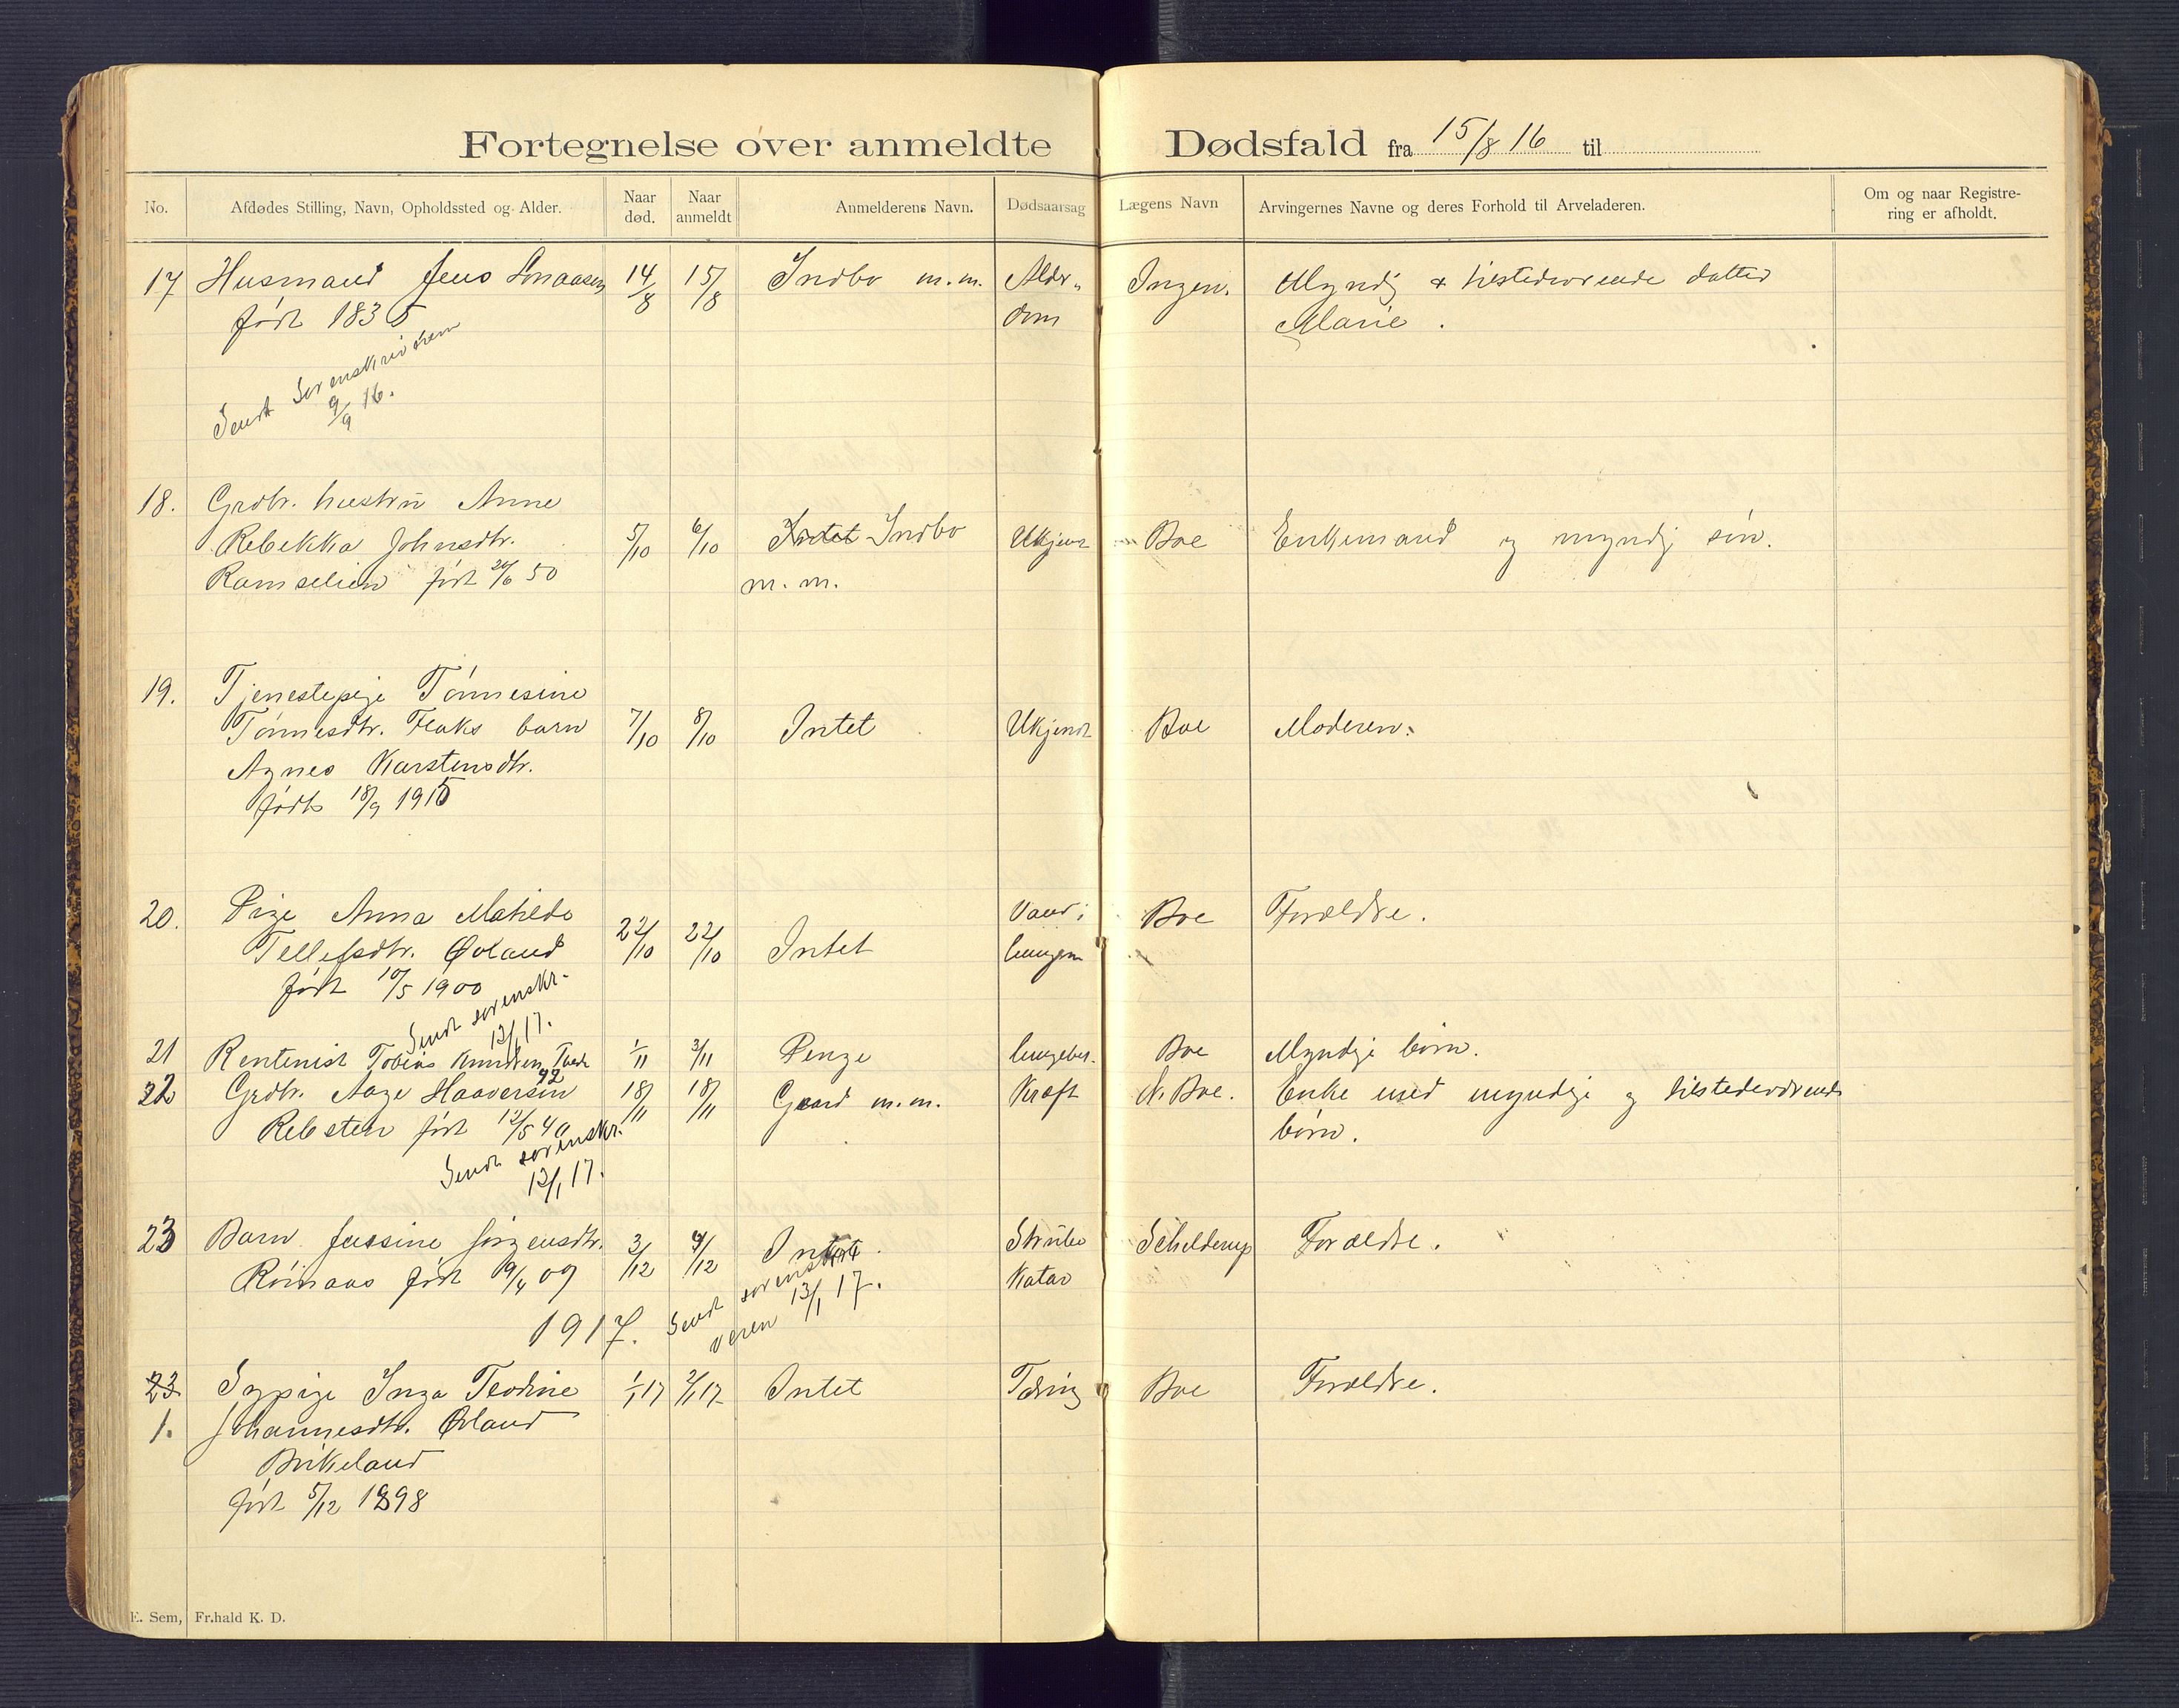 Fortegnelse over anmeldte Dødsfald fra 15/8 16 til
No. Afdødes Stilling, Navn, Opholdssted og Alder. Naar død. Naar anmeldt Anmelderens Navn. Dødsaarsag Lægens Navn Arvingernes Navne og deres Forhold til Arveladeren. Om og naar Registrering er afholdt.
17 Husmand Jens 14/8 15/8 Indbo m.m. Alder- Ingen. Myndig & tilstedeværende datter
født 1835 dom Marie.
Sendt Sorenskriveren
9/9 16.
18. Grdbr. hustru Anne
Rebekka Johnsdtr. 5/10 6/10 Intet Indbo Ukjent Boe Enkemand og myndig søn.
Ramselien født 24/6 50 m.m.
19. Tjenestepige Tønnesine
Tønnesdtr. Flaks barn 7/10 8/10 Intet Ukjendt Boe Moderen.
Agnes Karstensdtr.
født 18/9 1915
20. Pige Anna Matilde Vand i Boe Forældre.
Tellefsdtr. Øvland 22/10 22/10 Intet lungen
født 10/5 1900
Sendt sorenskr.
13/1 17.
21 Rentenist Tobias Knudsen Tvede 1/11 3/11 Penge lungebet. Boe Myndige børn.
42
22 Grdbr. Aage Haaversen 18/11 18/11 Gaard m.m. Kræft N. Boe. Enke med myndige og tilstedeværende
Rebsten født 12/5 40 børn.
Sendt sorenskr.
13/1 17.
23 Barn Jussine Jørgensdtr. 3/12 4/12 Intet. Strube Schelderup Forældre.
Røinaas født 19/4 09 Katar
1917. Sendt sorenskri
veren 13/1 17.
23. Sypige Inga Teodine 1/1 17 2/1 17 Intet Tæring Boe Forældre.
1. Johannesdtr. Øvland
Birkeland
født 5/12 1898
E. Sem, Fr.hald K. D.